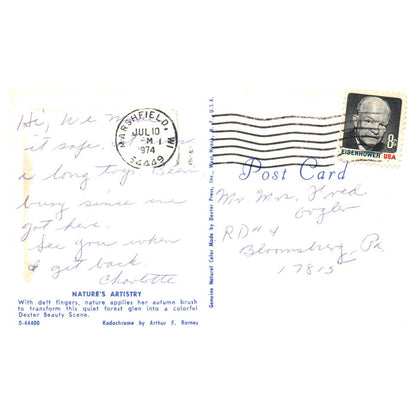 Hi, We made
it safe.
a long trip. Been
busy since we
got here.
See you when
I get back.
Charlotte
NATURE'S ARTISTRY
With deft fingers, nature applies her autumn brush
to transform this quiet forest glen into a colorful
Dexter Beauty Scene.
D-44400 Kodachrome by Arthur F. Barnes
MARSHFIELD, WI
JUL 10
PM
1974
54449
Genuine Natural Color Made by Dexter Press, Inc., West Nyack, N.Y., U.S.A.
EISENHOWER USA
8c
Post Card
Mr. Mrs. Fred
RD#4
Bloomsburg, Pa
17815